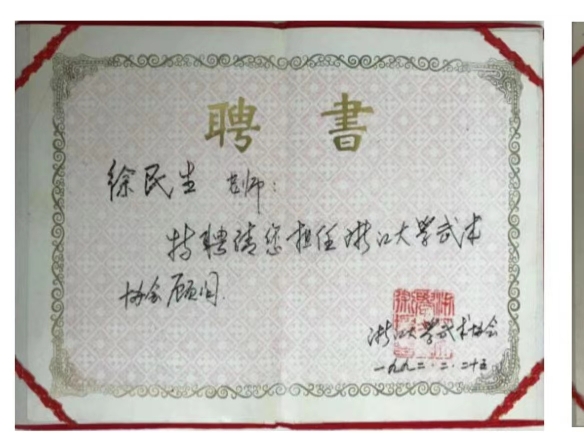 聘書
徐民生 老师：
特聘请您担任浙江大学武术
协会顾问.
浙江大学武术协会
一九九二.二.二十五